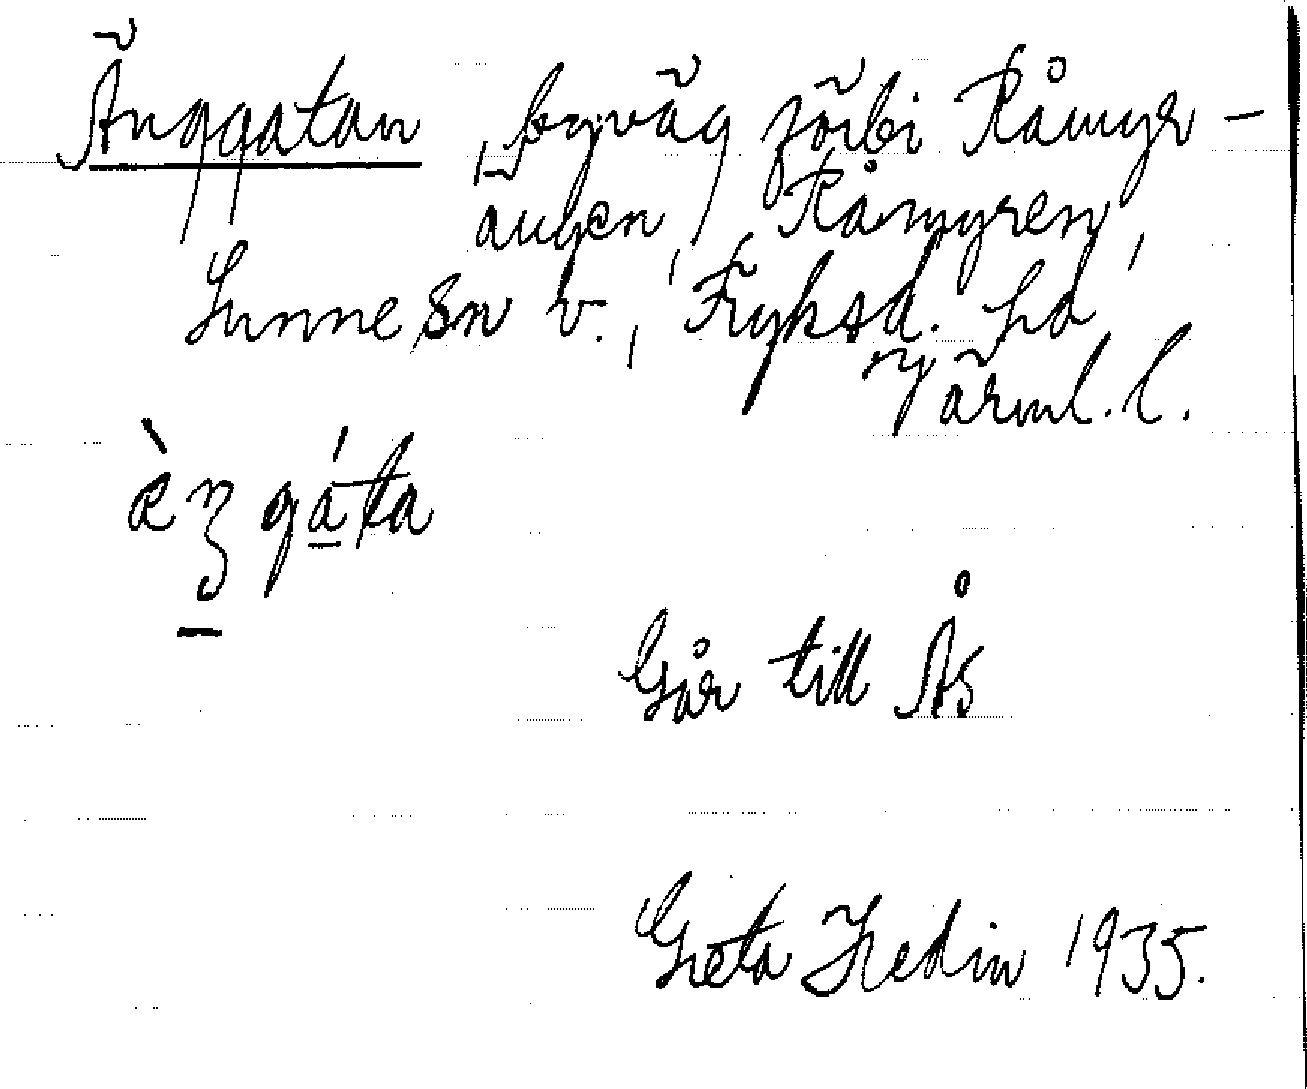 Änggatan, byväg förbi Råmyr-
ängen, Råmyren,
Sunne sn v., Fryksd. hd
Värml. l.
Går till Ås
Greta Hedin 1935.